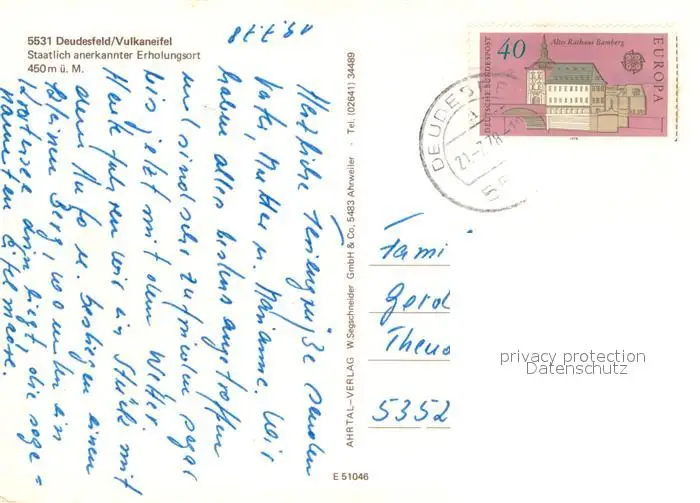 5531 Deudesfeld/Vulkaneifel
Staatlich anerkannter Erholungsort
450 m ü. M.
19.7.78
Herzliche Feriengrüße senden
Vater, Mutter u. Marianne. Wir
haben alles bestens angetroffen
und sind sehr zufrieden sogar
bis jetzt mit dem Wetter.
Heute fuhren wir ein Stück mit
dem Auto u. bestiegen einen
kleinen Berg, wo
Kratersee drin liegt, die soge=
nannten Eifelmaare.
AHRTAL-VERLAG W.Segschneider GmbH & Co, 5483 Ahrweiler - Tel. (02641) 34489
E 51046
DEUTSCHE BUNDESPOST
40
Altes Rathaus Bamberg
EUROPA
1978
DEUDES
21.-7.78
55
Fami
Gerd
Theo
5352
privacy protection
Datenschutz